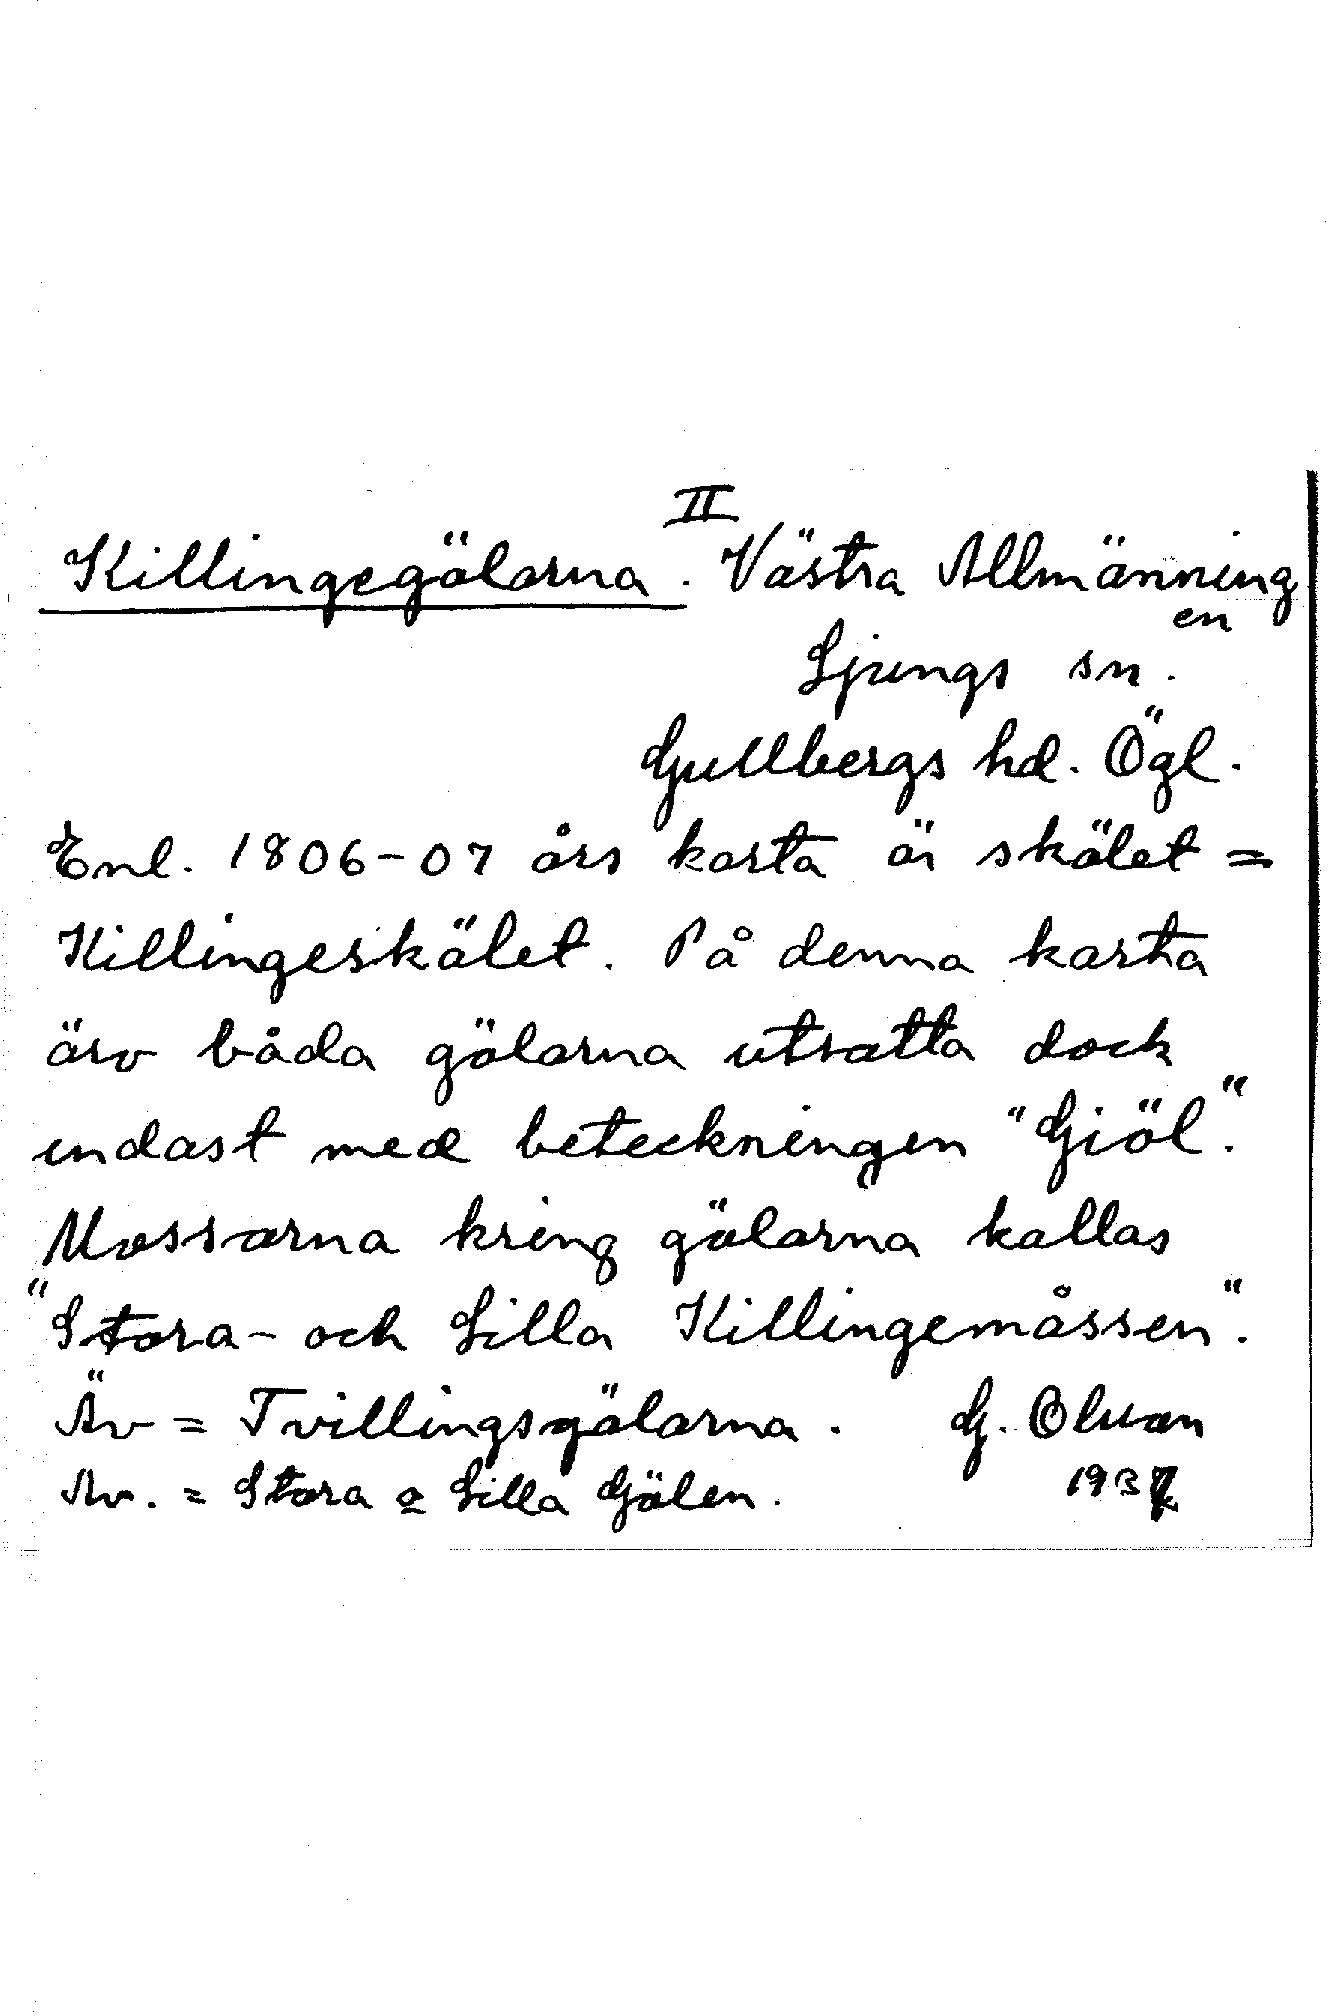 II
Killingegölarna. Västra Allmänning
en
Ljungs sn.
Gullbergs hd. Ögl.
Enl. 1806-07 års karta är skälet =
Killingeskälet. På denna karta
äro båda gölarna utsatta dock
endast med beteckningen "Giöl".
Mossarna kring gölarna kallas
"Stora- och Lilla Killingemåssen".
Äv = Tvillingsgölarna. G. Olsson
Äv. = Stora o Lilla Gölen. 1937